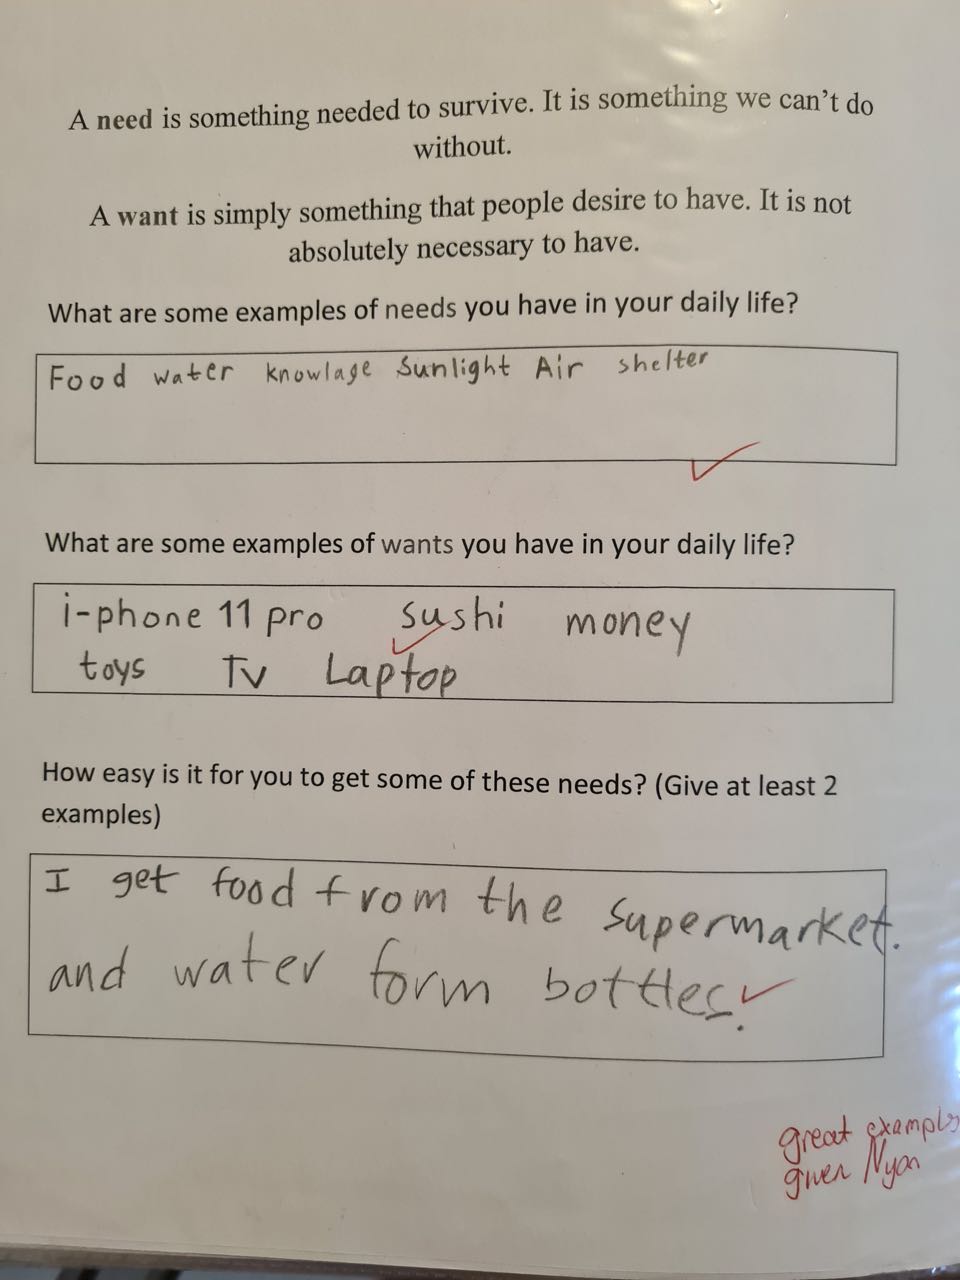 A need is something needed to survive. It is something we can't do
without.
A want is simply something that people desire to have. It is not
absolutely necessary to have.
What are some examples of needs you have in your daily life?
Food water knowlage Sunlight Air shelter
What are some examples of wants you have in your daily life?
i-phone 11 pro sushi money
toys TV Laptop
How easy is it for you to get some of these needs? (Give at least 2
examples)
I get food from the supermarket.
and water form bottles.
great examples
given Nyan